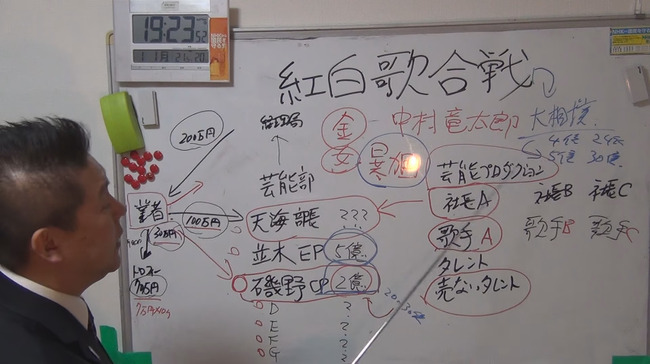 19:23 52
11月21 20
紅白歌合戦
経理局
金 中村竜太郎 大相撲
4億 2千
5億 30億
200万円
女
芸能部
芸能プロダクション
業者
100万円
天海部長 ???
社長A 社長B 社長C
30万円
並木EP 5億
歌手A 歌手B 歌手C
7万円
磯野CP 2億
タレント
売ないタレント
20~30億
D ?
E ?
F ?
G ?